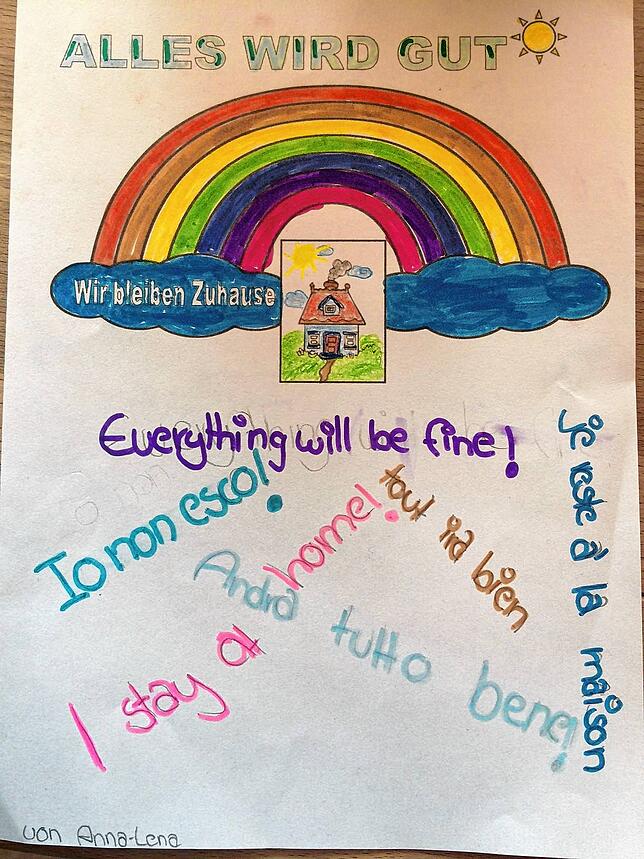 ALLES WIRD GUT
Wir bleiben Zuhause
Everything will be fine!
Io non esco!
tout ira bien
je reste à la maison
Andrà tutto bene!
I stay at home!
von Anna-Lena